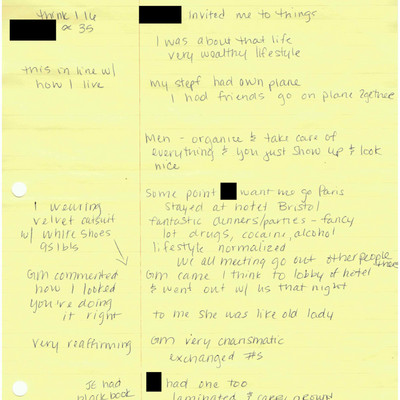 think I 16
or 35
Invited me to things
I was about that life
very wealthy lifestyle
this in line w/
how I live
my stepf had own plane
I had friends go on plane together
Men - organize & take care of
everything & you just show up & look
nice
Some point want me go Paris
Stayed at hotel Bristol
I wearing
velvet catsuit
w/ white shoes
95 lbs
fantastic dinners/parties - fancy
lot drugs, cocaine, alcohol
lifestyle normalized
we all meeting go out other people there
GM commented
how I looked
you're doing
it right
GM came I think to lobby of hotel
& went out w/ us that night
to me she was like old lady
very reaffirming
GM very charismatic
exchanged #s
JE had
black book
had one too
laminated & carry around